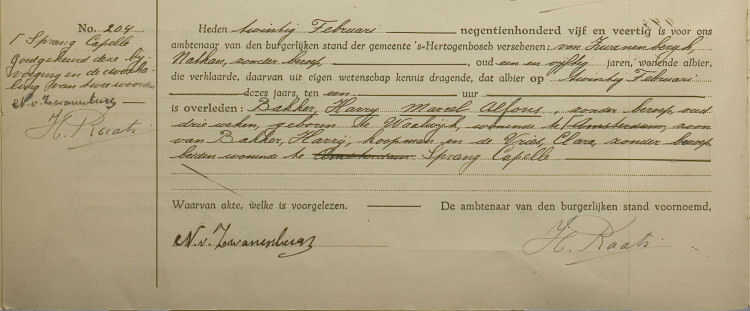 No. 204
1 Sprang Capelle
goedgekeurd deze bij
voeging en de doorha
ling van twee woorden
N. v. Zwanenburg
H. Raats
Heden twintig Februari negentienhonderd vijf en veertig is voor ons
ambtenaar van den burgerlijken stand der gemeente 's-Hertogenbosch verschenen: van Zwanenbergh,
Nathan, zonder beroep, oud een en vijftig jaren, wonende alhier,
die verklaarde, daarvan uit eigen wetenschap kennis dragende, dat alhier op twintig Februari
dezes jaars, ten een uur
is overleden: Bakker, Harry Marcel Alfons, zonder beroep, oud
drie weken, geboren te Waalwijk, wonende te Amsterdam, zoon
van Bakker, Harrij, koopman en de Vries, Clara, zonder beroep
beiden wonende te Amsterdam Sprang Capelle
Waarvan akte, welke is voorgelezen. De ambtenaar van den burgerlijken stand voornoemd,
N. v. Zwanenburg
H. Raats